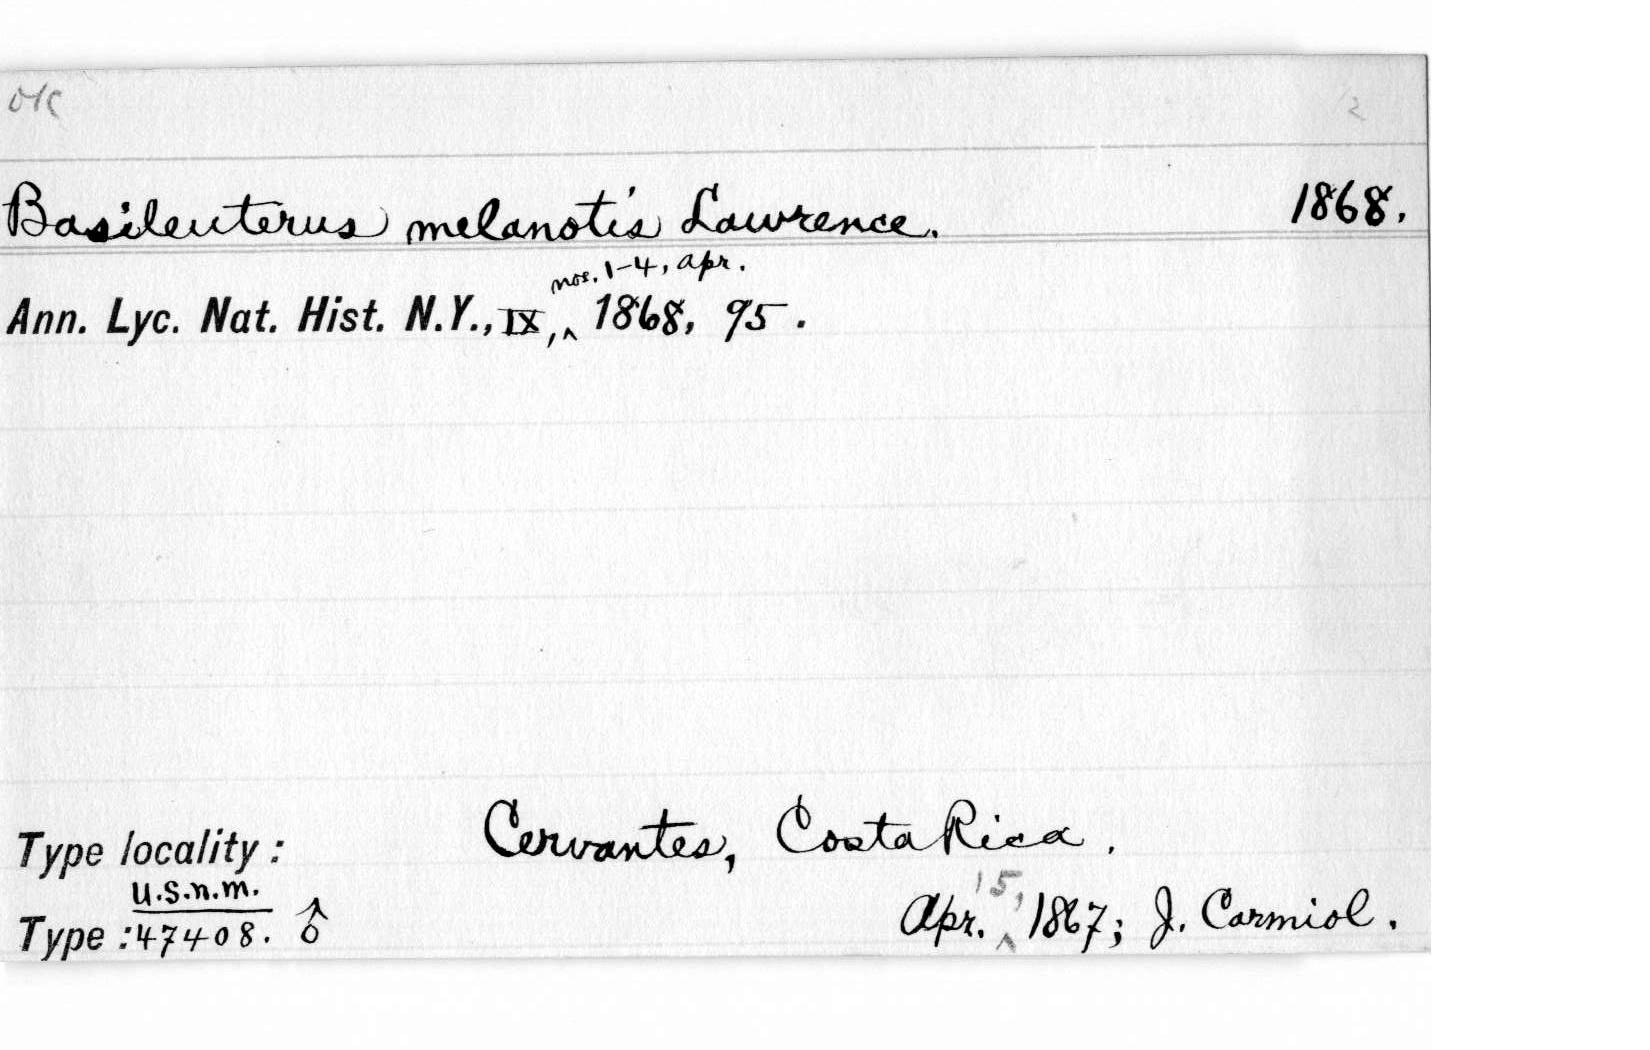 OK 2
Basileuterus melanotis Lawrence. 1868.
nos. 1-4, Apr.
Ann. Lyc. Nat. Hist. N.Y., IX, ^ 1868, 95.
Type locality: Cervantes, Costa Rica.
U.S.N.M. 15,
Type: 47408. ♂ Apr. ^ 1867; J. Carmiol.